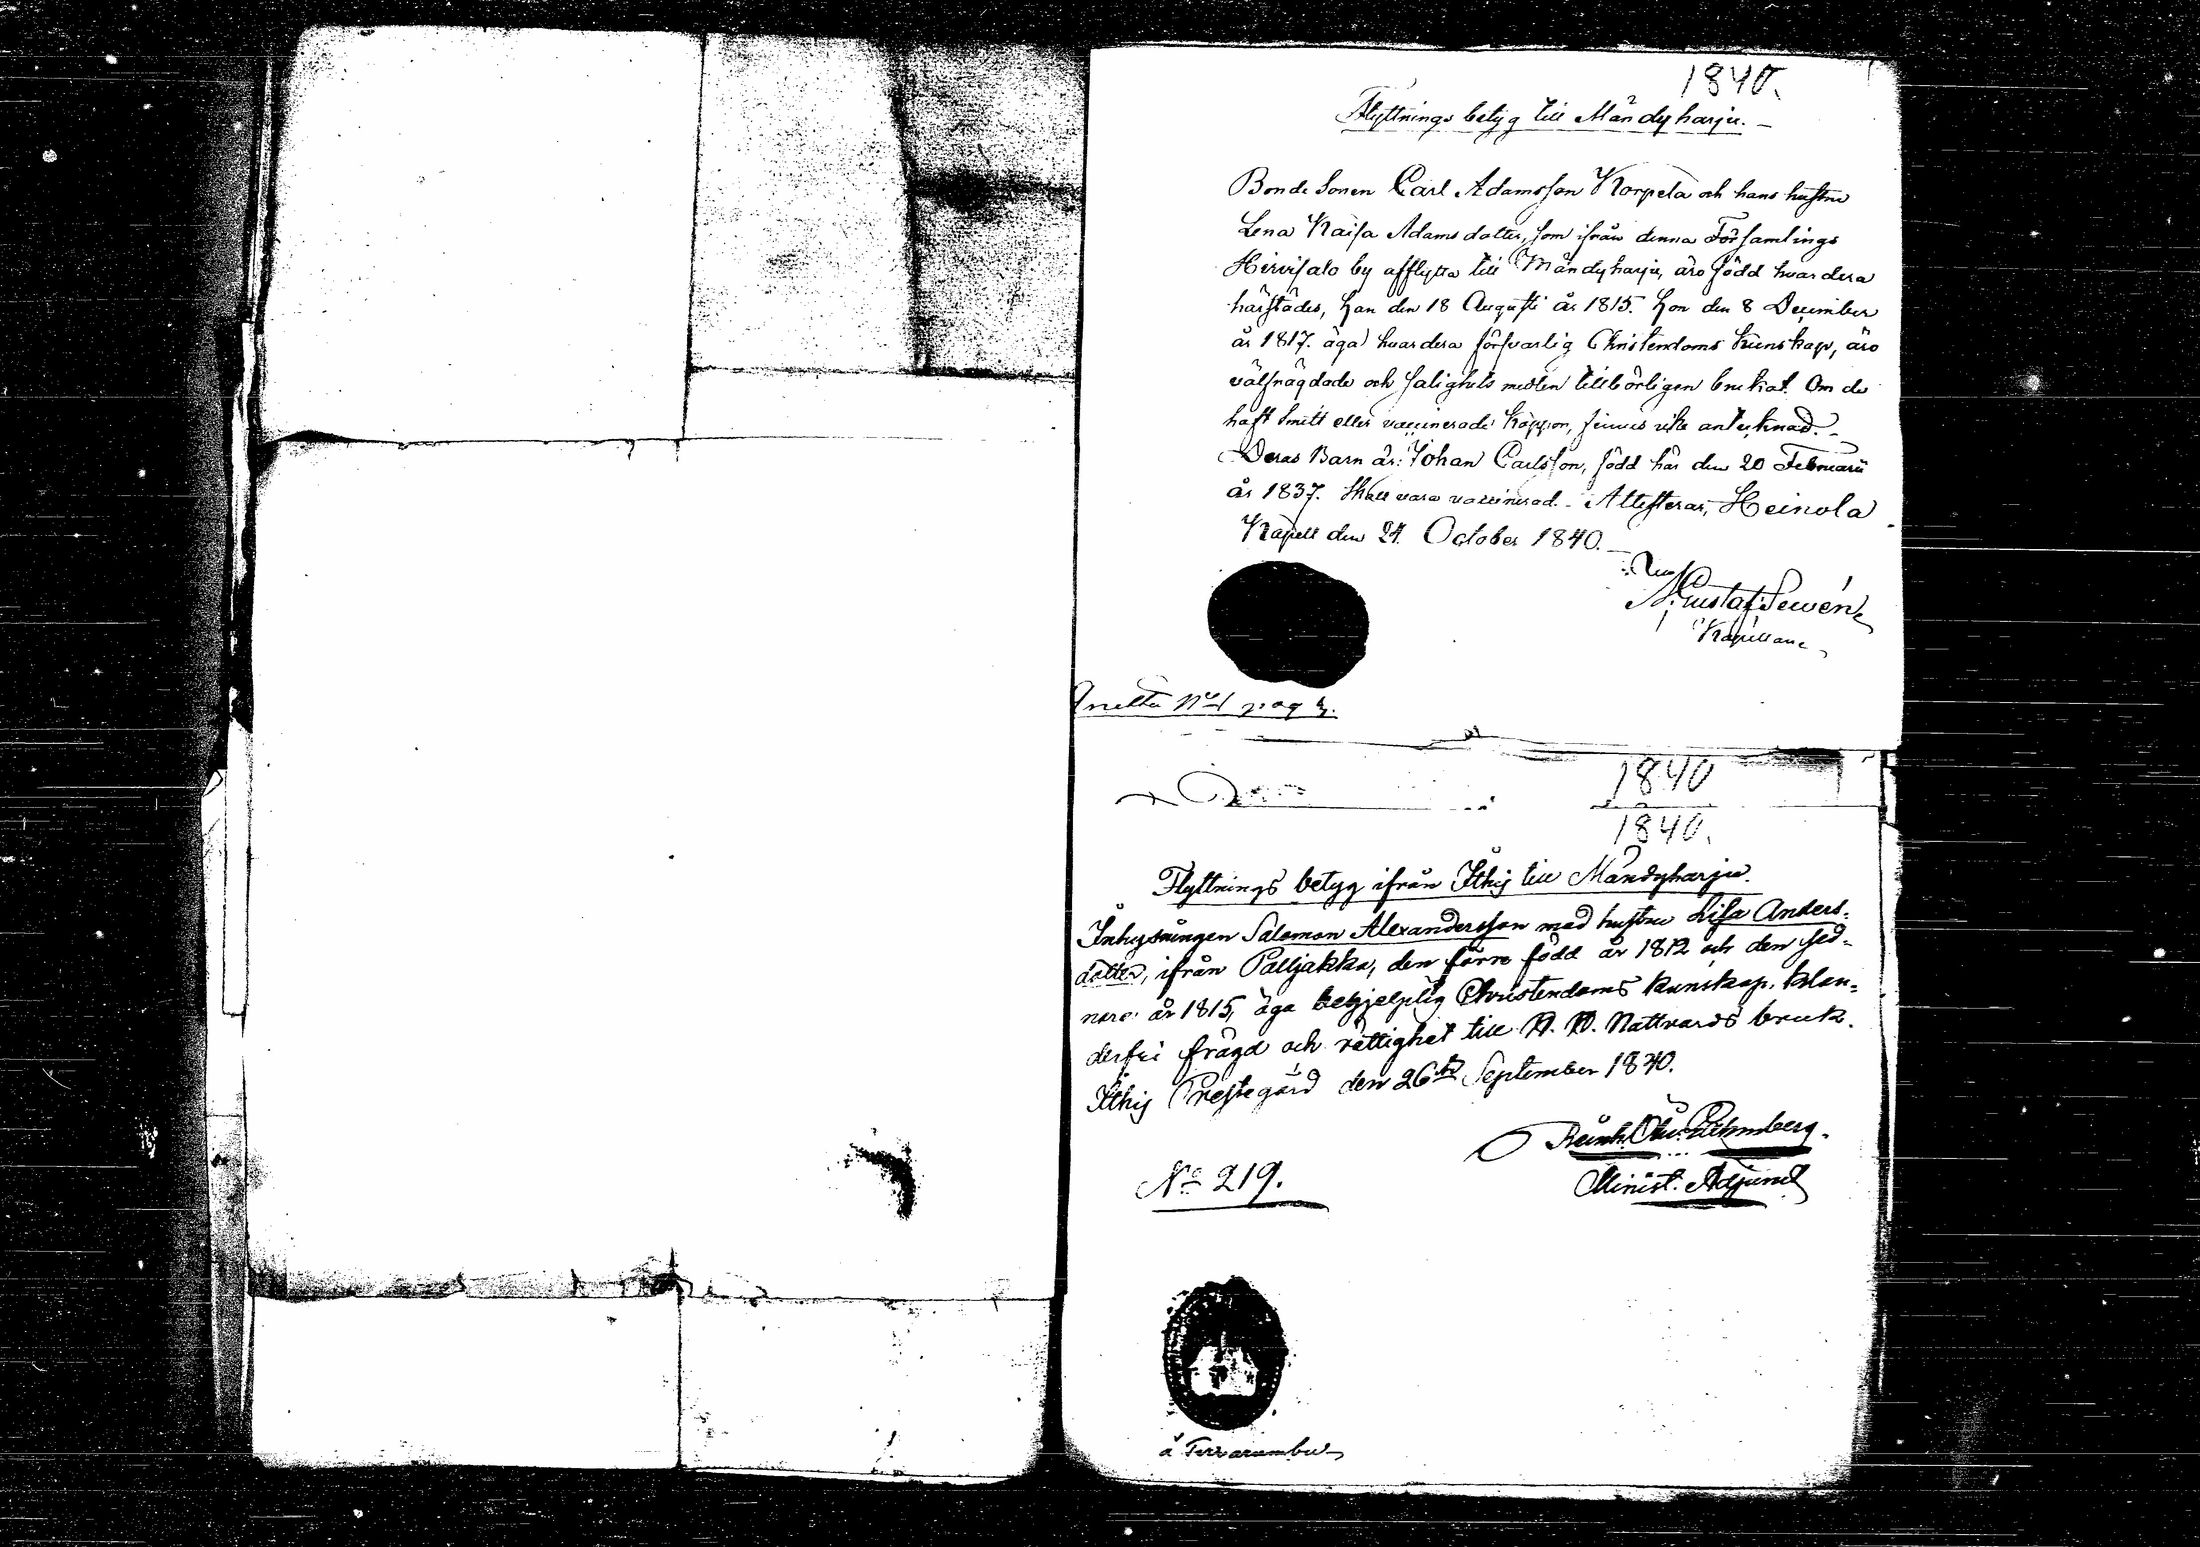 1840.
Flyttnings betyg till Mändyharju.
Bonde Sonen Carl Adamsson Korpela och hans hustru
Lena Kaisa Adamsdotter, som ifrån denna Församlings
Hirvisalo by afflytta till Mändyharju, äro född hvardera
härstädes, han den 18 Augusti år 1815. hon den 8 December
år 1817. äga hvardera försvarlig Christendoms kunskap, äro
välfrägdade och salighets medlen tillbörligen brukat. Om de
haft smitt eller vaccinerade koppor, finnes icke antecknad.
Deras Barn är: Johan Carlsson, född här den 20 Februarii
år 1837. Skall vara vaccinerad. Attesterar, Heinola
Kapell den 24. October 1840.
Gustaf
Kapellan
N:o 1 pag 3.
1840
1840.
Flyttnings betyg ifrån Ithis till Mändyharju.
Inhysningen Salomon Alexandersson med hustru Lisa Anders-
dotter, ifrån Palljakka, den förre född år 1812 och den sed-
nare år 1815, äga behjelplig Christendoms kunskap, klan-
derfri frägd och rättighet till H. H. Nattvards bruk.
Ithis Prestegård den 26:te September 1840.
Minist. Adjunct
N:o 219.